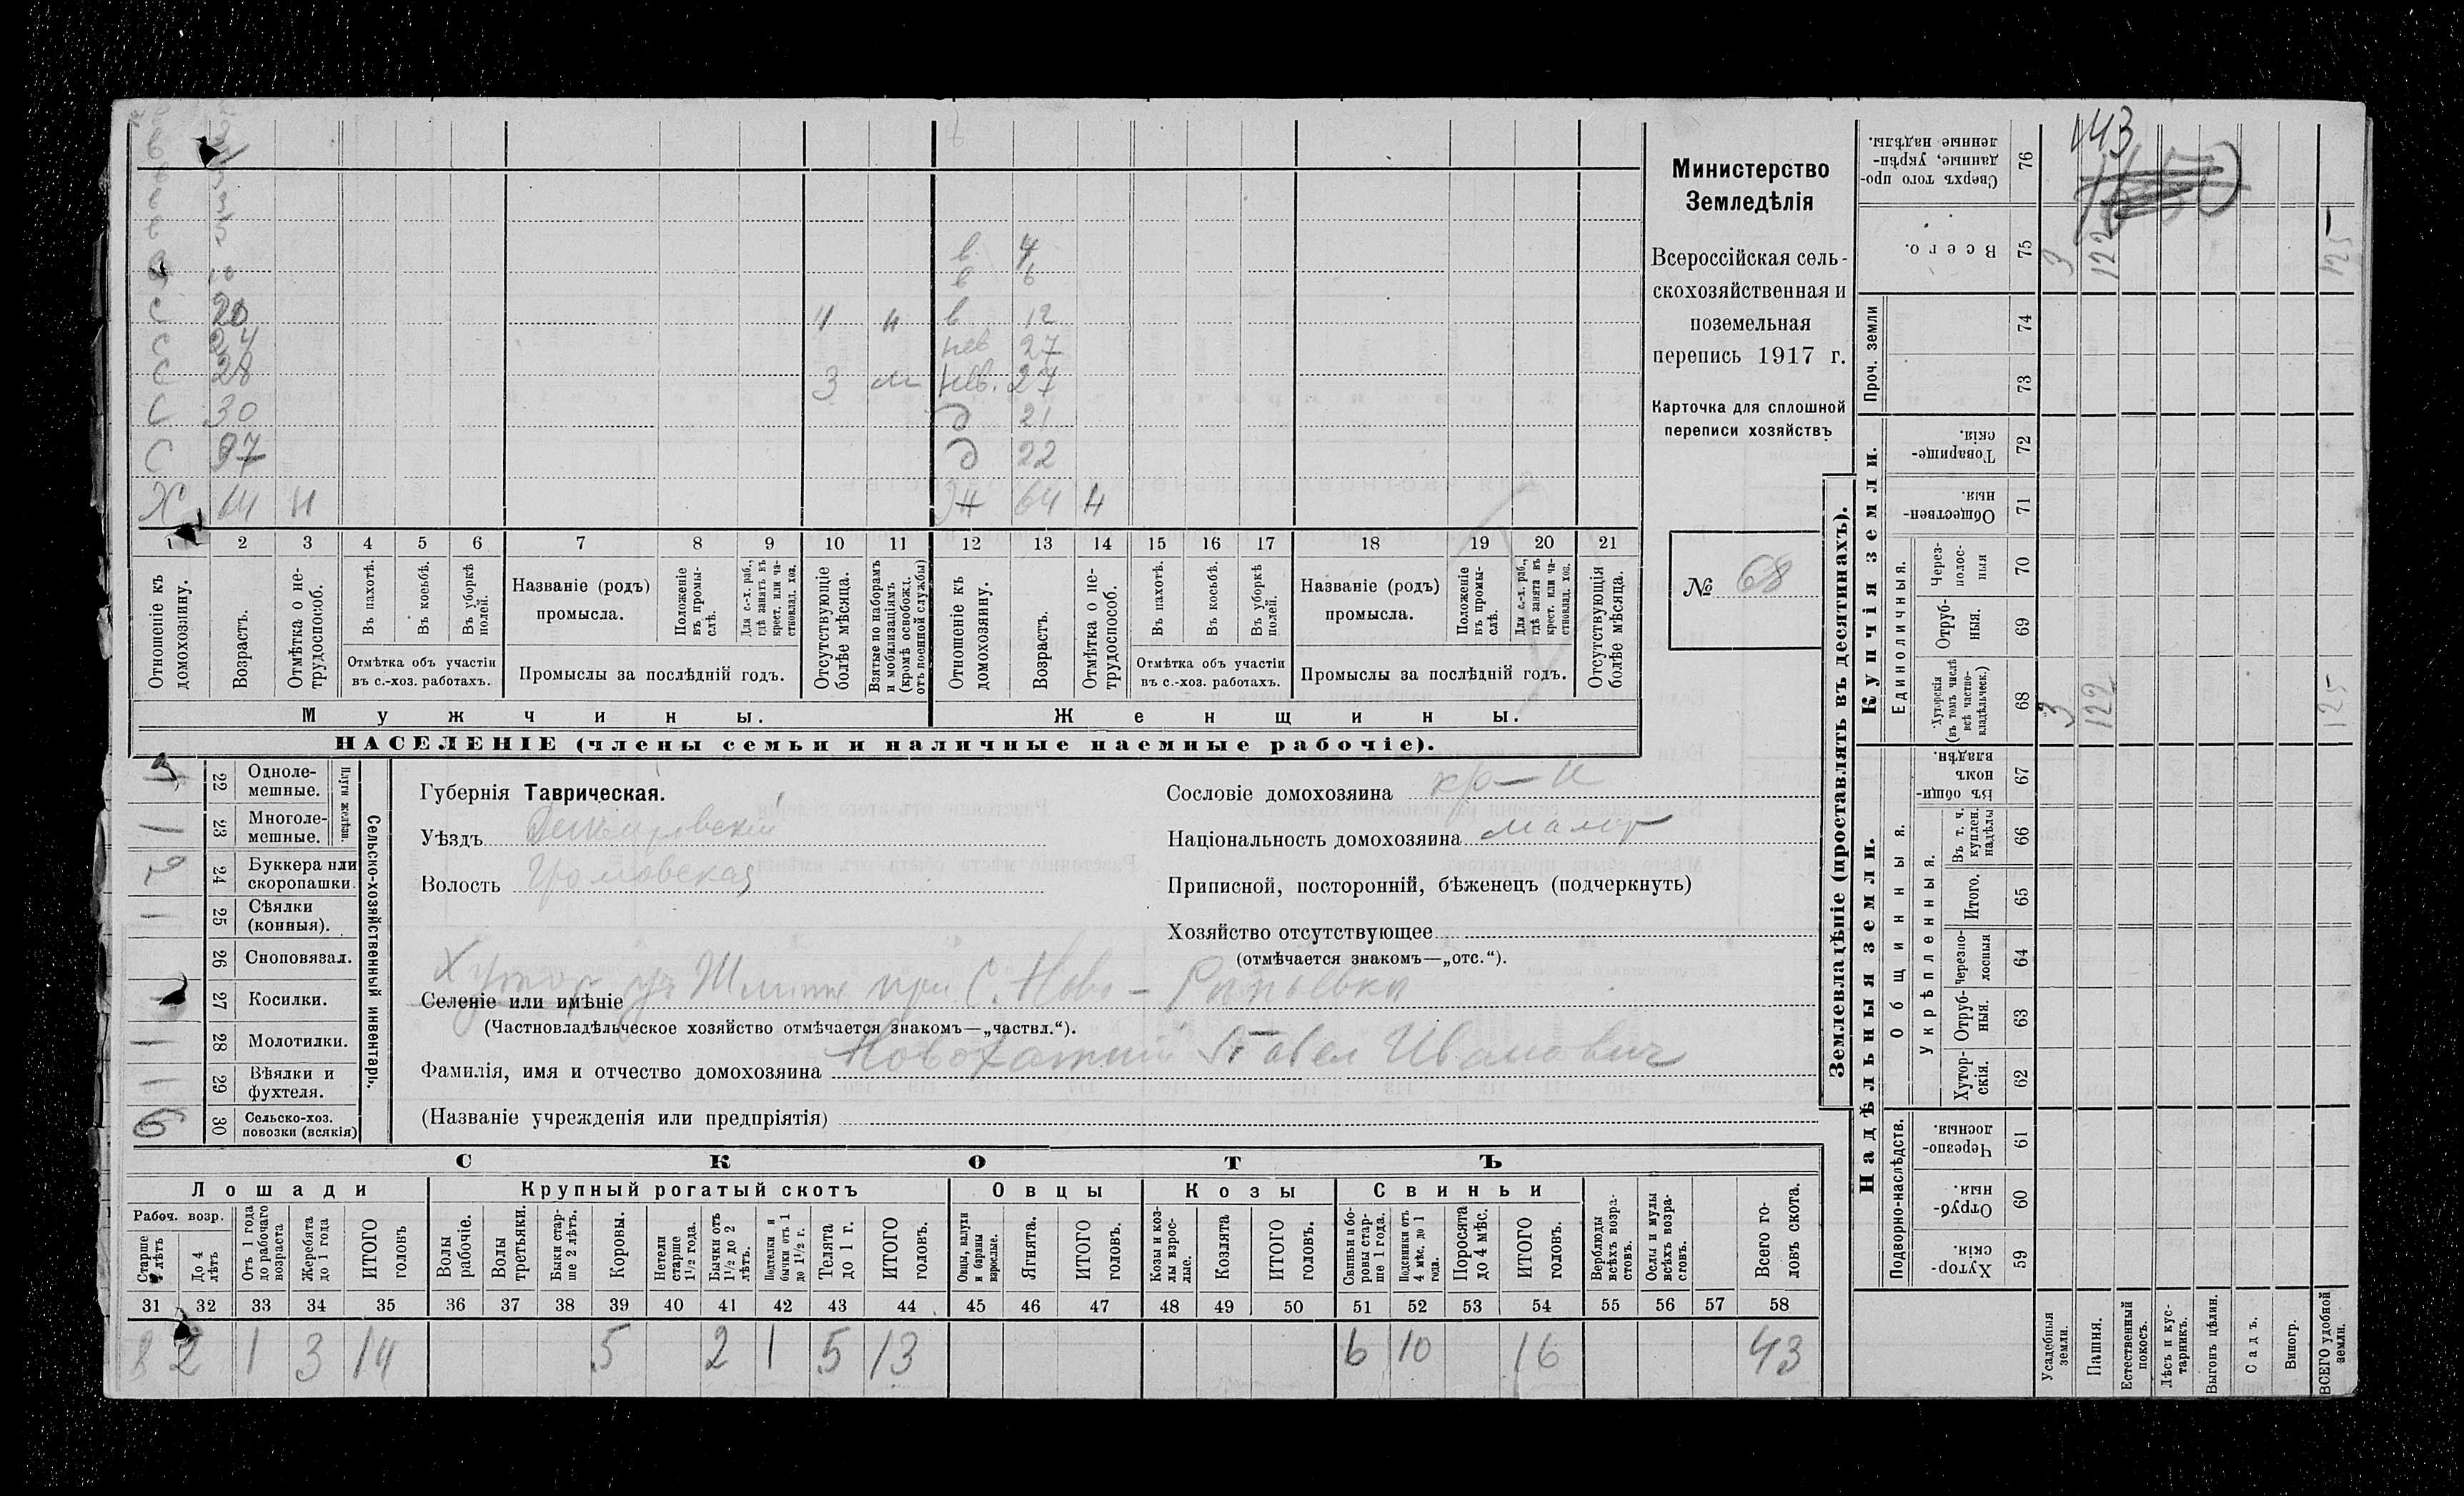 Министерство
Земледѣлія
Всероссійская сель-
скохозяйственная и
поземельная
перепись 1917 г.
Карточка для сплошной
переписи хозяйствъ
№ 68
в 4
в 6
С 20 в 12
С 24 нев 27
С 28 3 нев. 27
С 30 д 21
С 37 д 22
Х 64 н Ж 64 н
1 2 3 4 5 6 7 8 9 10 11 12 13 14 15 16 17 18 19 20 21
Отношеніе къ домохозяину.
Возрастъ.
Отмѣтка о не-трудоспособ.
Въ пахотѣ.
Въ косьбѣ.
Въ уборкѣ полей.
Отмѣтка объ участіи въ с.-хоз. работахъ.
Названіе (родъ) промысла.
Положеніе въ промы-слѣ.
Для с.-х. раб., гдѣ занятъ въ крест. или ча-стновлад. хоз.
Промыслы за послѣдній годъ.
Отсутствующіе болѣе мѣсяца.
Взятые по наборамъ и мобилизаціямъ (кромѣ освобожд. отъ военной службы)
Отношеніе къ домохозяину.
Возрастъ.
Отмѣтка о не-трудоспособ.
Въ пахотѣ.
Въ косьбѣ.
Въ уборкѣ полей.
Отмѣтка объ участіи въ с.-хоз. работахъ.
Названіе (родъ) промысла.
Положеніе въ промы-слѣ.
Для с.-х. раб., гдѣ занята въ крест. или ча-стновлад. хоз.
Промыслы за послѣдній годъ.
Отсутствующія болѣе мѣсяца.
Мужчины. Женщины.
НАСЕЛЕНІЕ (члены семьи и наличные наемные рабочіе).
Сельско-хозяйственный инвентарь.
Плуги желѣзн.
22 Одноле-мешные.
1 23 Многоле-мешные.
2 24 Буккера или скоропашки.
1 25 Сѣялки (конныя).
26 Сноповязал.
27 Косилки.
1 28 Молотилки.
1 29 Вѣялки и фухтеля.
6 30 Сельско-хоз. повозки (всякія)
Губернія Таврическая.
Уѣздъ
Волость Громовская
Сословіе домохозяина кр-н
Національность домохозяина малор
Приписной, посторонній, бѣженецъ (подчеркнуть)
Хозяйство отсутствующее
(отмѣчается знакомъ—„отс.“).
Селеніе или имѣніе Хутор при С. Ново-
(Частновладѣльческое хозяйство отмѣчается знакомъ—„частвл.“).
Фамилія, имя и отчество домохозяина Новохатний Павел Иванович
(Названіе учрежденія или предпріятія)
СКОТЪ
Лошади Крупный рогатый скотъ Овцы Козы Свиньи
Рабоч. возр.
Старше 4 лѣтъ
До 4 лѣтъ
Отъ 1 года до рабочаго возраста
Жеребята до 1 года
ИТОГО головъ
Волы рабочіе.
Волы третьяки.
Быки стар-ше 2 лѣтъ.
Коровы.
Нетели старше 1½ года.
Бычки отъ 1½ до 2 лѣтъ.
Подтелки и бычки отъ 1 до 1½ г.
Телята до 1 г.
ИТОГО головъ.
Овцы, валухи и бараны взрослые.
Ягнята.
ИТОГО головъ.
Козы и коз-лы взрос-лые.
Козлята
ИТОГО головъ.
Свиньи и бо-ровы стар-ше 1 года.
Подсвинки отъ 4 мѣс. до 1 года.
Поросята до 4 мѣс.
ИТОГО головъ.
Верблюды всѣхъ возра-стовъ.
Ослы и мулы всѣхъ возра-стовъ.
Всего го-ловъ скота.
31 32 33 34 35 36 37 38 39 40 41 42 43 44 45 46 47 48 49 50 51 52 53 54 55 56 57 58
8 2 1 3 14 5 2 1 5 13 6 10 16 43
Землевладѣніе (проставлять въ десятинахъ).
Купчія земли.
Надѣльныя земли.
Сверхъ того про-данные, укрѣп-ленные надѣлы. 76 143
Всего. 75 3 122 125
Проч. земли 74
73
Товарище-скія. 72
Обществен-ныя. 71
Единоличныя.
Через-полос-ныя 70
Отруб-ныя. 69
Хуторскія (въ томъ числѣ всѣ частно-владѣльческ.) 68 3 122 125
Общинныя.
Въ общин-номъ владѣн. 67
Укрѣпленныя.
Въ т. ч. куплен. надѣлы 66
Итого. 65
Черезпо-лосныя 64
Отруб-ныя. 63
Хутор-скія. 62
Подворно-наслѣдств.
Черезпо-лосныя. 61
Отруб-ныя. 60
Хутор-скія. 59
Усадебныя земли.
Пашня.
Естественный покосъ.
Лѣсъ и кус-тарникъ.
Выгонъ цѣлин.
Садъ.
Виногр.
ВСЕГО удобной земли.